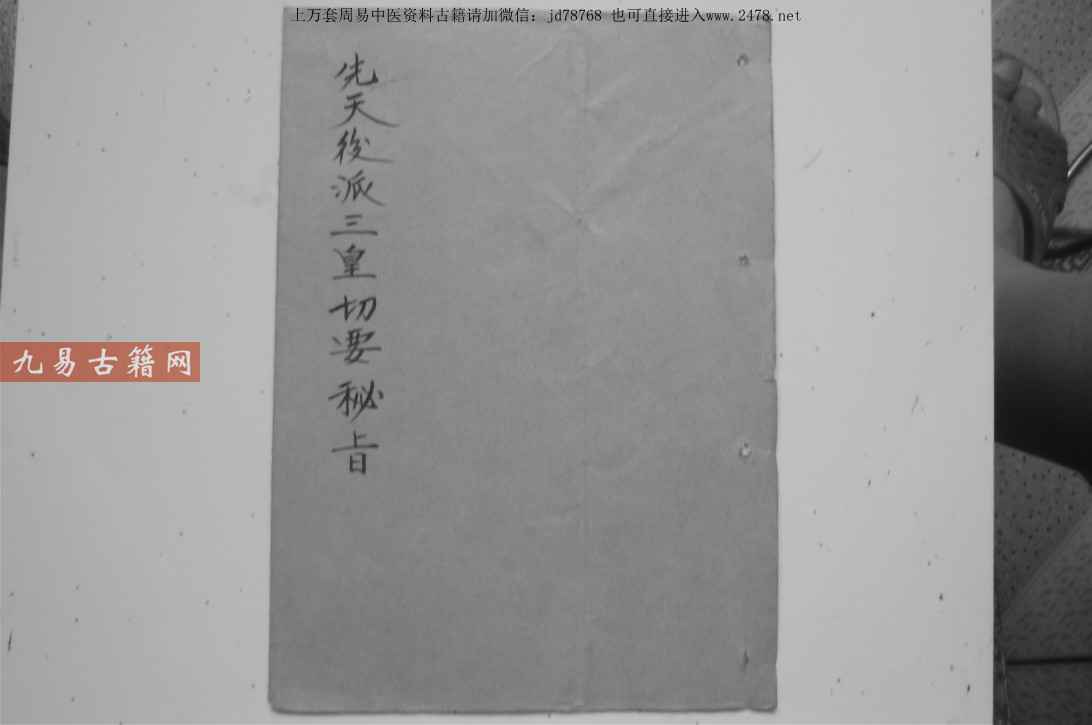 上万套周易中医资料古籍请加微信：jd78768 也可直接进入www.2478.net
先天後派三皇切要秘旨
九易古籍网